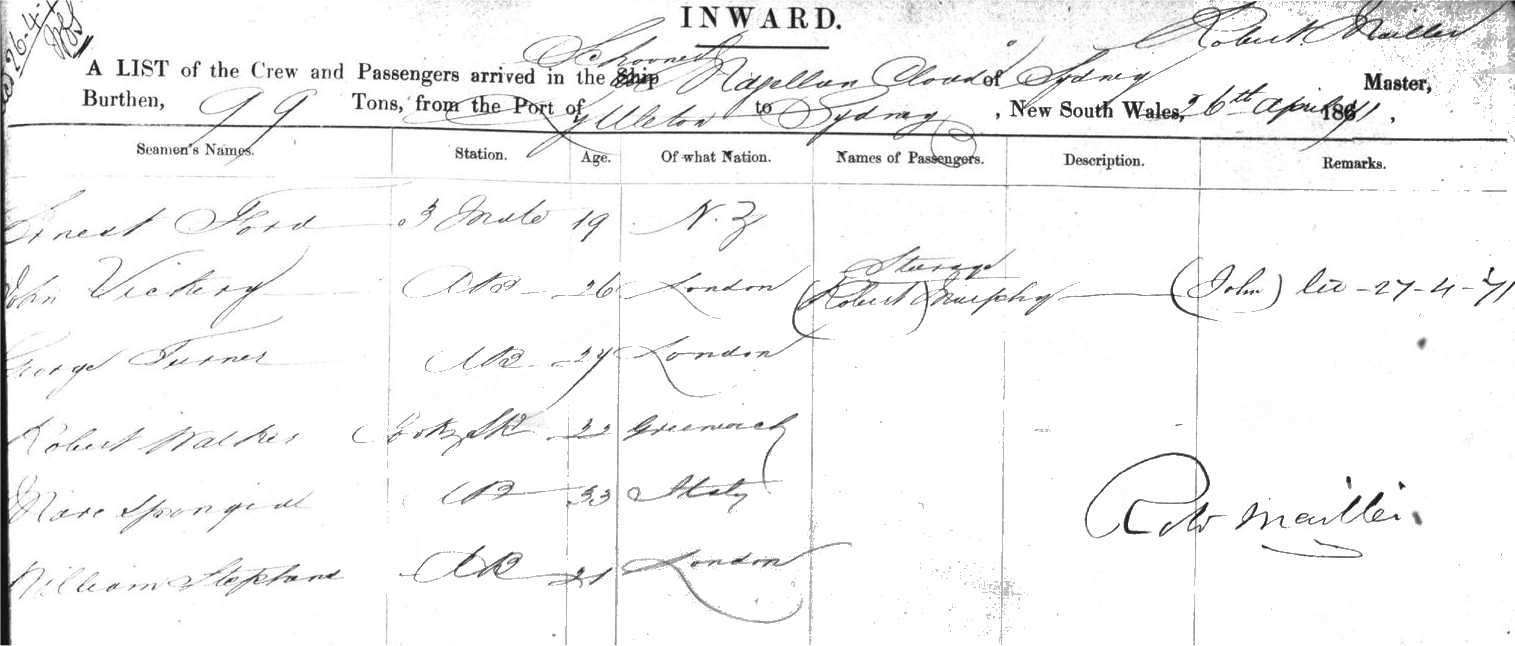 26-4-
INWARD.
A LIST of the Crew and Passengers arrived in the Ship Schooner Cloud of Sydney Robert Master,
Burthen, 99 Tons, from the Port of Lyttleton to Sydney, New South Wales, 26th April 1871.
Seamen's Names. Station. Age. Of what Nation. Names of Passengers. Description. Remarks.
Ernest Ford Mate 19 N.Z
John Vickery AB 26 London Sturage (Robert) Murphy (John) 27-4-71
George Turner AB 27 London
Robert Walker Cook 22 Greenwich
AB 33 Italy
William Stephens AB 21 London
Robt